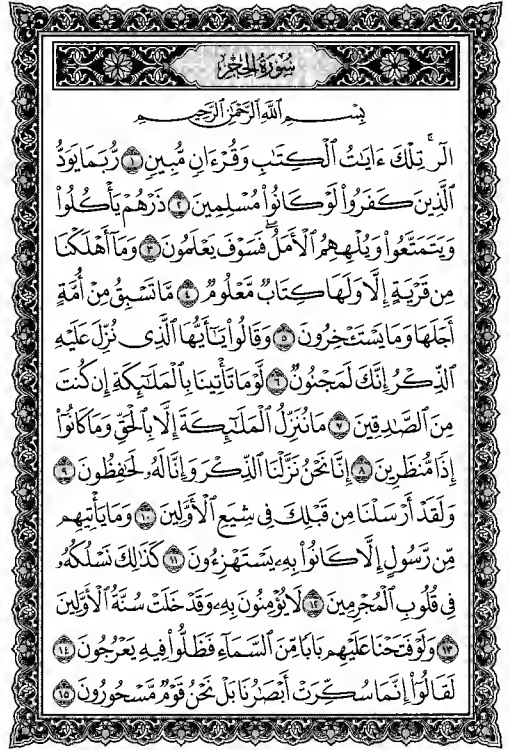 سُورَةُ الحِجْرِ
بِسْمِ اللَّهِ الرَّحْمَٰنِ الرَّحِيمِ
الٓر ۚ تِلْكَ ءَايَٰتُ ٱلْكِتَٰبِ وَقُرْءَانٍ مُّبِينٍ ١ رُّبَمَا يَوَدُّ
ٱلَّذِينَ كَفَرُوا۟ لَوْ كَانُوا۟ مُسْلِمِينَ ٢ ذَرْهُمْ يَأْكُلُوا۟
وَيَتَمَتَّعُوا۟ وَيُلْهِهِمُ ٱلْأَمَلُ ۖ فَسَوْفَ يَعْلَمُونَ ٣ وَمَآ أَهْلَكْنَا
مِن قَرْيَةٍ إِلَّا وَلَهَا كِتَابٌ مَّعْلُومٌ ٤ مَّا تَسْبِقُ مِنْ أُمَّةٍ
أَجَلَهَا وَمَا يَسْتَـْٔخِرُونَ ٥ وَقَالُوا۟ يَٰٓأَيُّهَا ٱلَّذِى نُزِّلَ عَلَيْهِ
ٱلذِّكْرُ إِنَّكَ لَمَجْنُونٌ ٦ لَّوْ مَا تَأْتِينَا بِٱلْمَلَٰٓئِكَةِ إِن كُنتَ
مِنَ ٱلصَّٰدِقِينَ ٧ مَا نُنَزِّلُ ٱلْمَلَٰٓئِكَةَ إِلَّا بِٱلْحَقِّ وَمَا كَانُوٓا۟
إِذًا مُّنظَرِينَ ٨ إِنَّا نَحْنُ نَزَّلْنَا ٱلذِّكْرَ وَإِنَّا لَهُۥ لَحَٰفِظُونَ ٩
وَلَقَدْ أَرْسَلْنَا مِن قَبْلِكَ فِى شِيَعِ ٱلْأَوَّلِينَ ١٠ وَمَا يَأْتِيهِم
مِّن رَّسُولٍ إِلَّا كَانُوا۟ بِهِۦ يَسْتَهْزِءُونَ ١١ كَذَٰلِكَ نَسْلُكُهُۥ
فِى قُلُوبِ ٱلْمُجْرِمِينَ ١٢ لَا يُؤْمِنُونَ بِهِۦ وَقَدْ خَلَتْ سُنَّةُ ٱلْأَوَّلِينَ
١٣ وَلَوْ فَتَحْنَا عَلَيْهِم بَابًا مِّنَ ٱلسَّمَآءِ فَظَلُّوا۟ فِيهِ يَعْرُجُونَ ١٤
لَقَالُوٓا۟ إِنَّمَا سُكِّرَتْ أَبْصَٰرُنَا بَلْ نَحْنُ قَوْمٌ مَّسْحُورُونَ ١٥